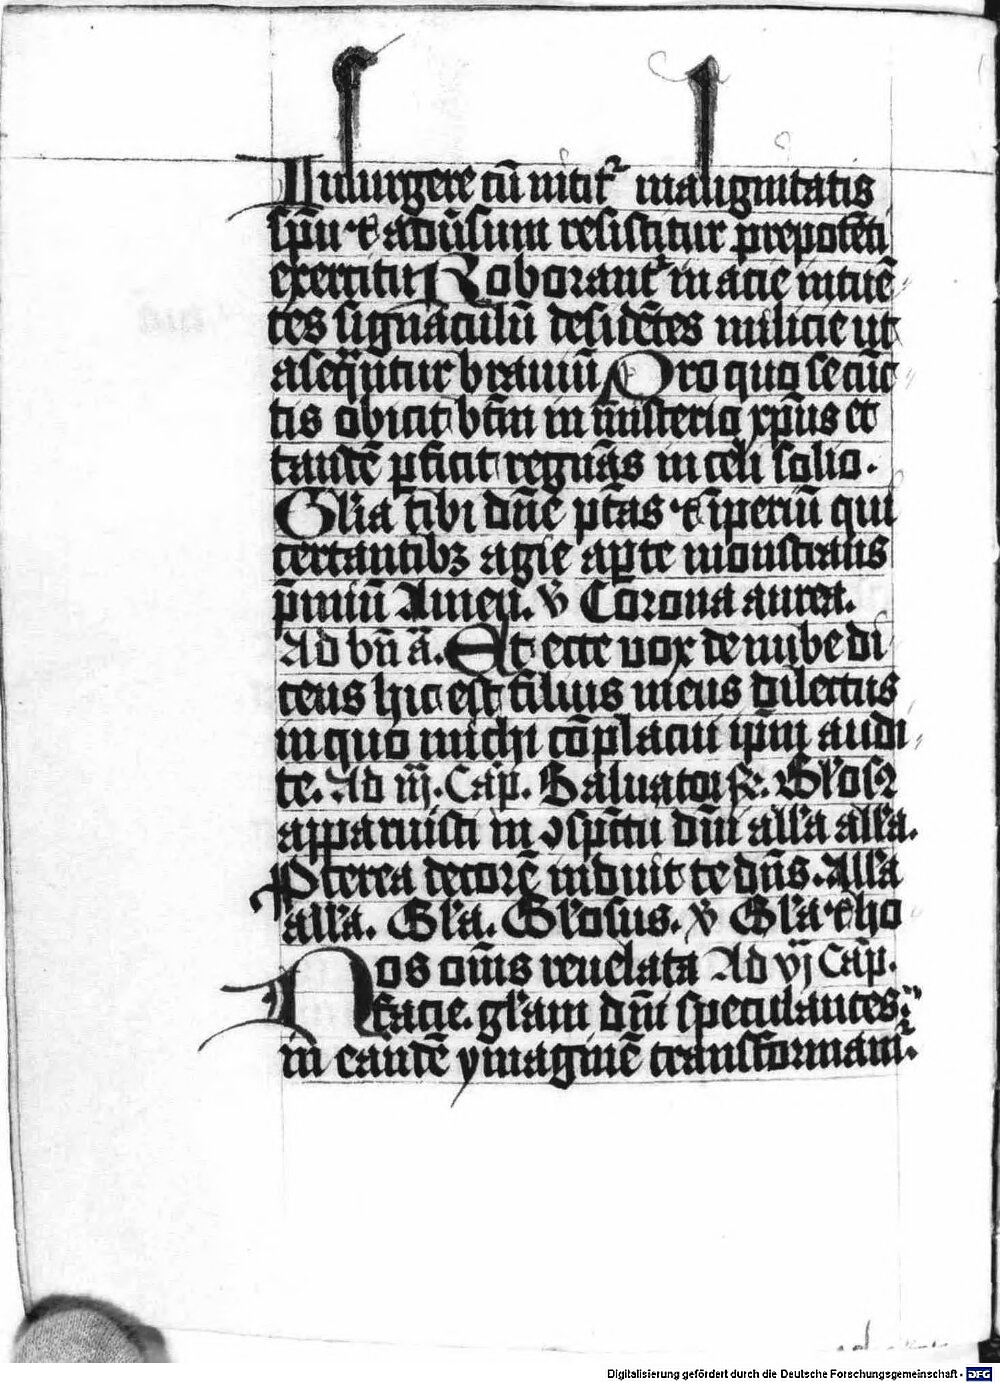 Insurgere cū nitit᷑ malignitatis
spū ⁊ adūsum resistitur prepotēti
exercitu Roborant᷑ in acie intuē
tes signaculū desidētes milicie ut
aseqūtur brauiū Pro quo se cūc
tis obicit btīn in mīsterio xp̄us et
tandē ꝑficit regnās in celi solio.
Glīa tibi dn̄e ptās ⁊ īperiū qui
certantibꝫ agie aperte monstratis
p̄miū Amen. ℣ Corona aurea.
Ad bn̄ ā. Et ecce uox de nube di
cens hic est filius meus dilectus
in quo michi cōplacui ip̄m audi
te. Ad iij. Cap̄. Saluatorē. Glosꝯ
apparuisti in ↄspc̄tu dn̄i alla alla.
Pterea decorē induit te dn̄s. Alla
alla. Gla. Glosus. ℣ Gla ⁊ ho
Nos om̄s reuelata Ad vj Cap̄.
facie. glam dn̄i speculantes
in eandē ymaginē transformam᷑.
Digitalisierung gefördert durch die Deutsche Forschungsgemeinschaft - DFG